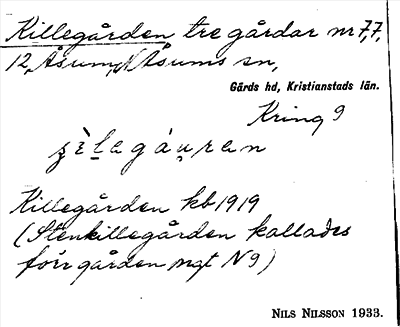 Killegården tre gårdar nr 7,7,
12, Åsum, N Åsums sn,
Gärds hd, Kristianstads län.
Kring 9
Killegården kb 1919
(Stenkillegården kallades
förr gården mgt N 9)
NILS NILSSON 1933.